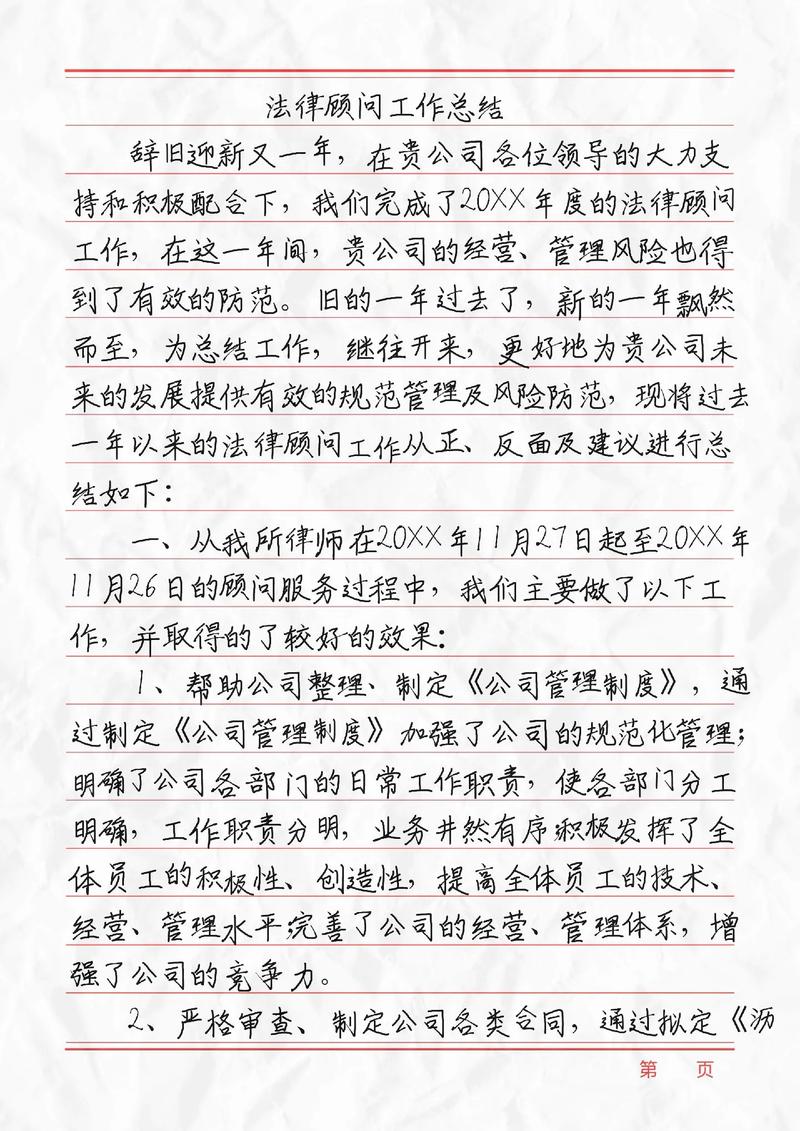 法律顾问工作总结
辞旧迎新又一年，在贵公司各位领导的大力支
持和积极配合下，我们完成了20XX年度的法律顾问
工作，在这一年间，贵公司的经营、管理风险也得
到了有效的防范。旧的一年过去了，新的一年飘然
而至，为总结工作，继往开来，更好地为贵公司未
来的发展提供有效的规范管理及风险防范，现将过去
一年以来的法律顾问工作从正、反面及建议进行总
结如下：
一、从我所律师在20XX年11月27日起至20XX年
11月26日的顾问服务过程中，我们主要做了以下工
作，并取得的了较好的效果：
1、帮助公司整理、制定《公司管理制度》，通
过制定《公司管理制度》加强了公司的规范化管理；
明确了公司各部门的日常工作职责，使各部门分工
明确，工作职责分明，业务井然有序;积极发挥了全
体员工的积极性、创造性，提高全体员工的技术、
经营、管理水平;完善了公司的经营、管理体系，增
强了公司的竞争力。
2、严格审查、制定公司各类合同，通过拟定《沥
第 页